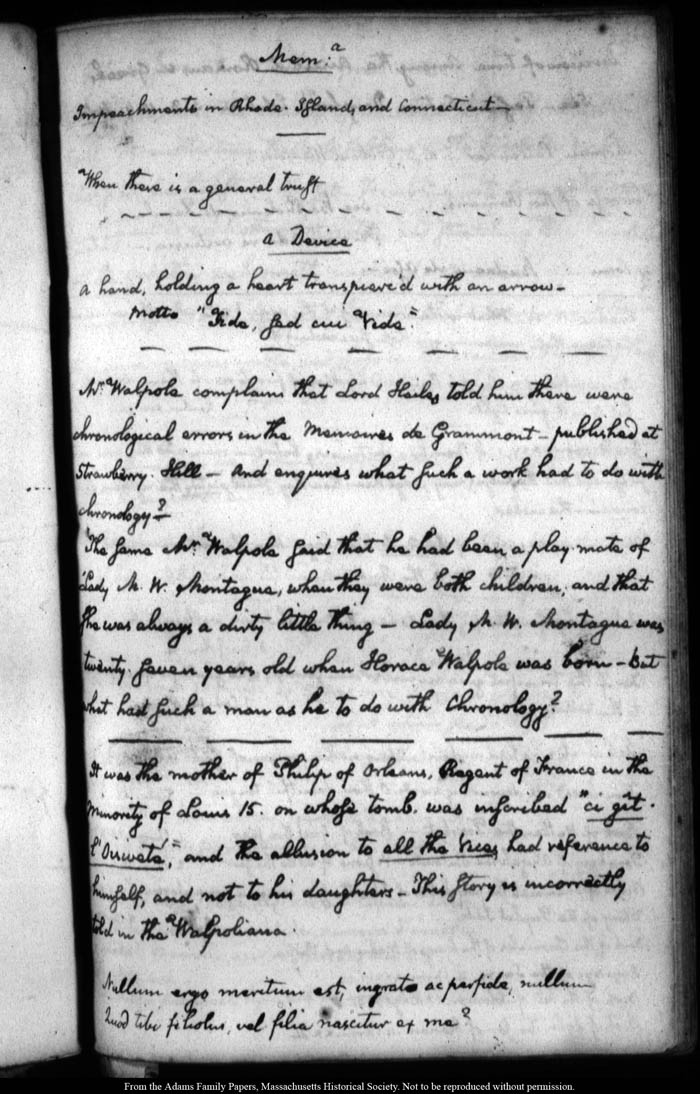 Mem:a
Impeachments in Rhode-Island, and Connecticut—
When there is a general trust
a Device
a hand, holding a heart transpierc'd with an arrow—
Motto "Fide, sed cui Vide".
Mr. Walpole complains that Lord Hailes told him there were
chronological errors in the Memoires de Grammont—published at
Strawberry-Hill—And enquires what such a work had to do with
chronology?—
The same Mr. Walpole said that he had been a play-mate of
Lady M. W. Montague, when they were both children, and that
she was always a dirty little thing—Lady M. W. Montague was
twenty-seven years old when Horace Walpole was born—But
what had such a man as he to do with Chronology?
It was the mother of Philip of Orleans, Regent of France in the
minority of Louis 15. on whose tomb. was inscribed "ci gît
l'Oisiveté," and the allusion to all the Vices, had reference to
himself, and not to his daughters—This story is incorrectly
told in the Walpoliana.
Nullum ergo meritum est, ingrate ac perfide, nullum
Quod tibi filiolus, vel filia nascitur ex me?
From the Adams Family Papers, Massachusetts Historical Society. Not to be reproduced without permission.